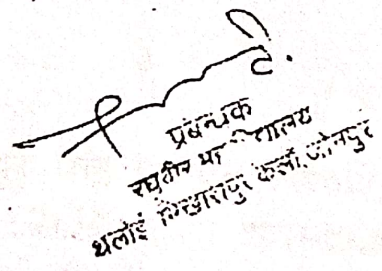 प्रबन्धक
रघुवीर महाविद्यालय
थलोई भिखारीपुर कलाँ, जौनपुर